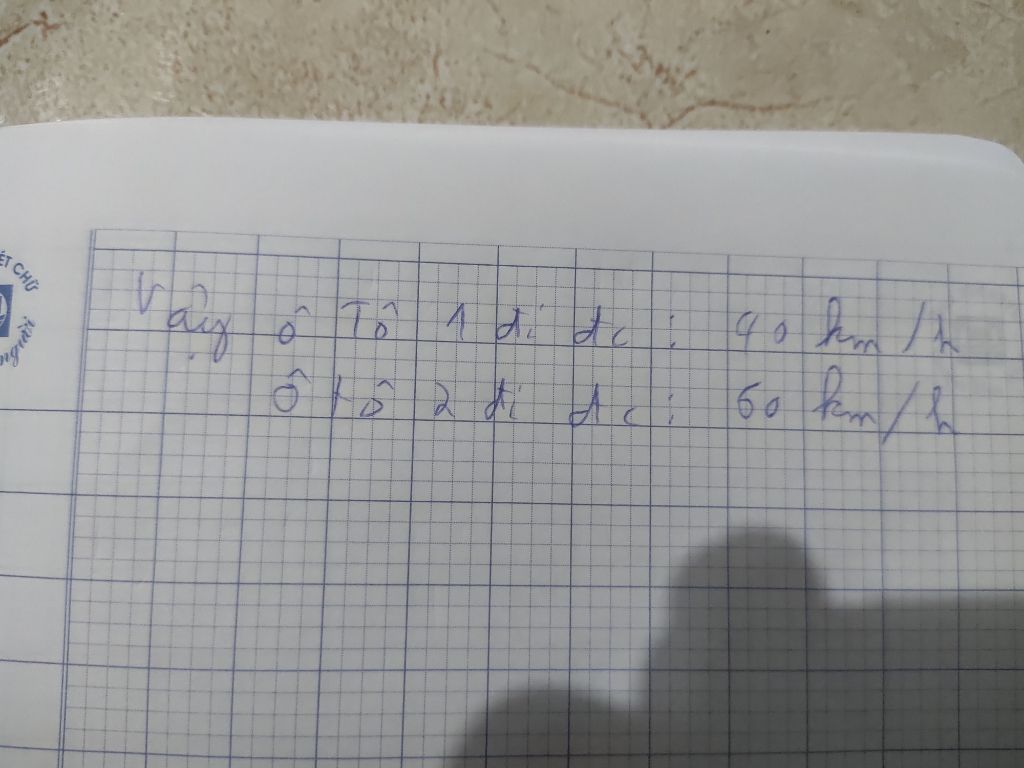 Vậy ô Tô 1 đi đc : 40 km/h
Ô tô 2 đi đc : 60 km/h
ẾT CHỮ
người